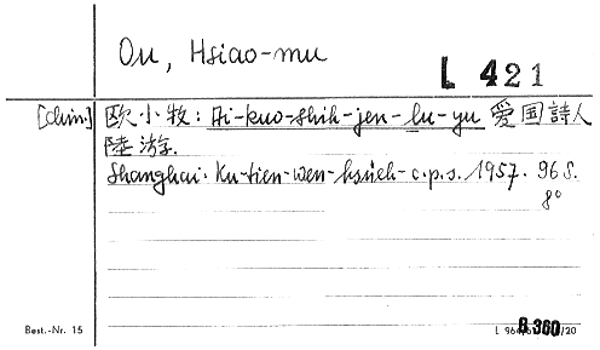 Ou, Hsiao-mu
L 421
[chin.] 欧小牧: Ai-kuo-shih-jen-lu-yu 爱国詩人
陸游.
Shanghai: Ku-tien-wen-hsüeh-c.p.s. 1957. 96 S.
8°
Best.-Nr. 15
B 360